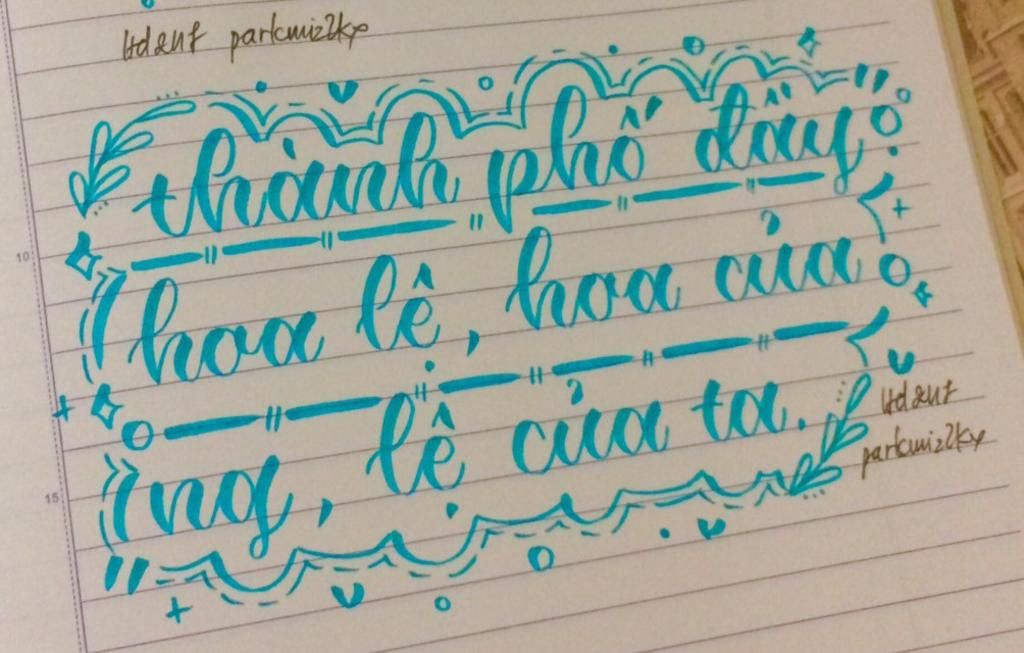 parkmiz2kx
thành phố đầy
hoa lê, hoa của
ng, lệ của ta.
parkmiz2kx
10
15